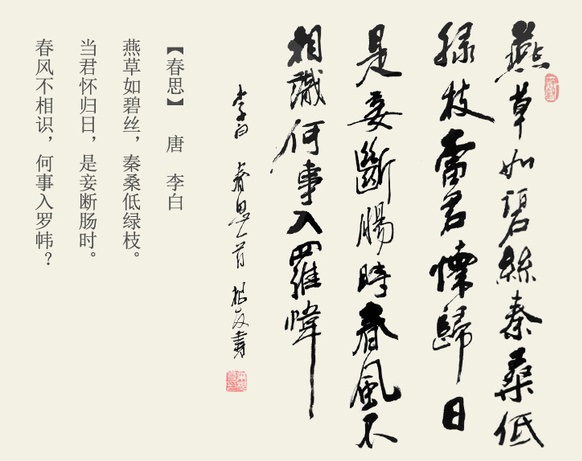 燕草如碧絲秦桑低
緑枝當君懷歸日
是妾斷腸時春風不
相識何事入羅幃
李白 春思一首
【春思】 唐 李白
燕草如碧丝，秦桑低绿枝。
当君怀归日，是妾断肠时。
春风不相识，何事入罗帏？